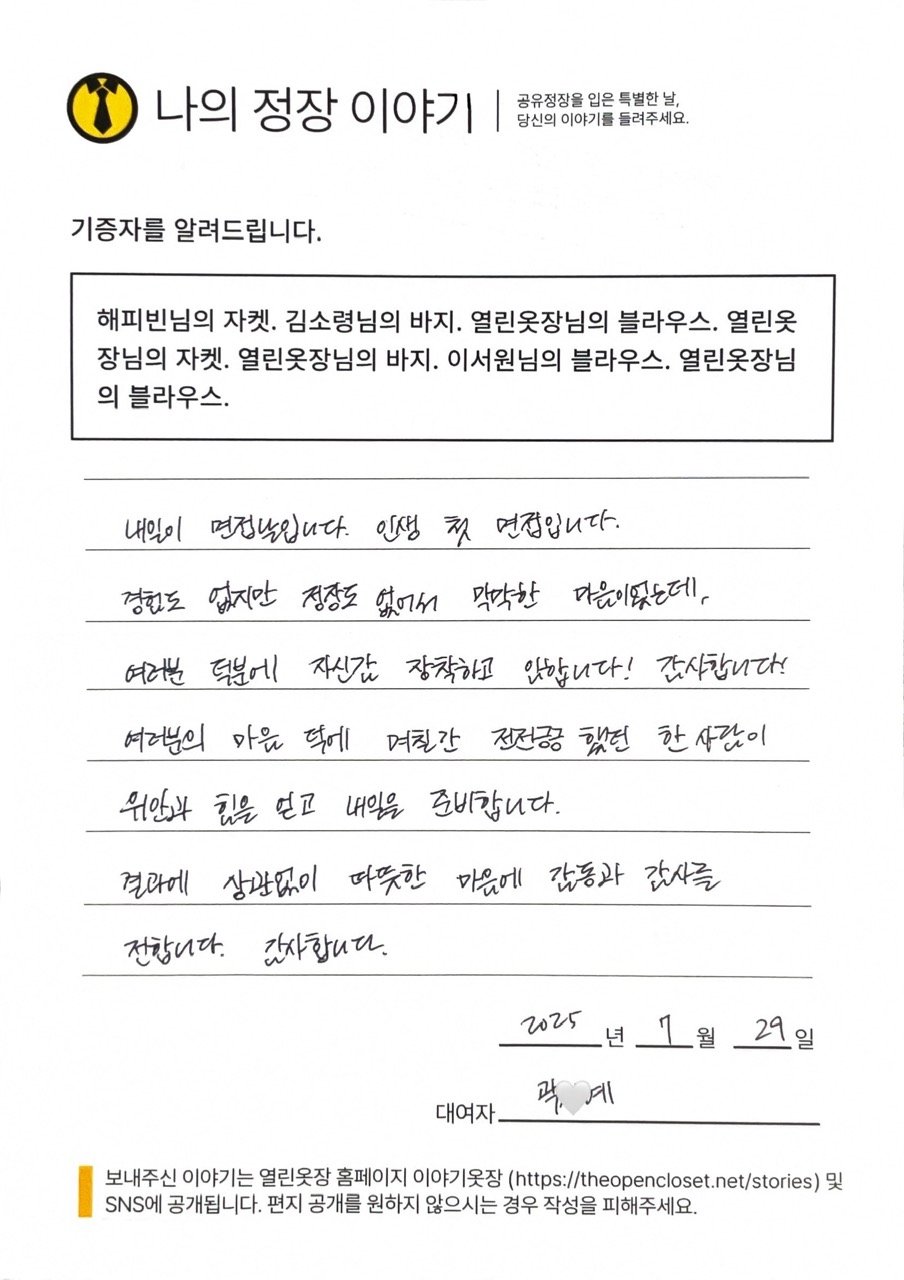 나의 정장 이야기
공유정장을 입은 특별한 날,
당신의 이야기를 들려주세요.
기증자를 알려드립니다.
해피빈님의 자켓. 김소령님의 바지. 열린옷장님의 블라우스. 열린옷
장님의 자켓. 열린옷장님의 바지. 이서원님의 블라우스. 열린옷장님
의 블라우스.
내일이 면접날입니다. 인생 첫 면접입니다.
경험도 없지만 정장도 없어서 막막한 마음이었는데,
여러분 덕분에 자신감 장착하고 임합니다! 감사합니다!
여러분의 마음 덕에 며칠간 전전긍긍 했던 한 사람이
위안과 힘을 얻고 내일을 준비합니다.
결과에 상관없이 따뜻한 마음에 감동과 감사를
전합니다. 감사합니다.
2025 년 7 월 29 일
대여자 곽 예
보내주신 이야기는 열린옷장 홈페이지 이야기옷장 (https://theopencloset.net/stories) 및
SNS에 공개됩니다. 편지 공개를 원하지 않으시는 경우 작성을 피해주세요.